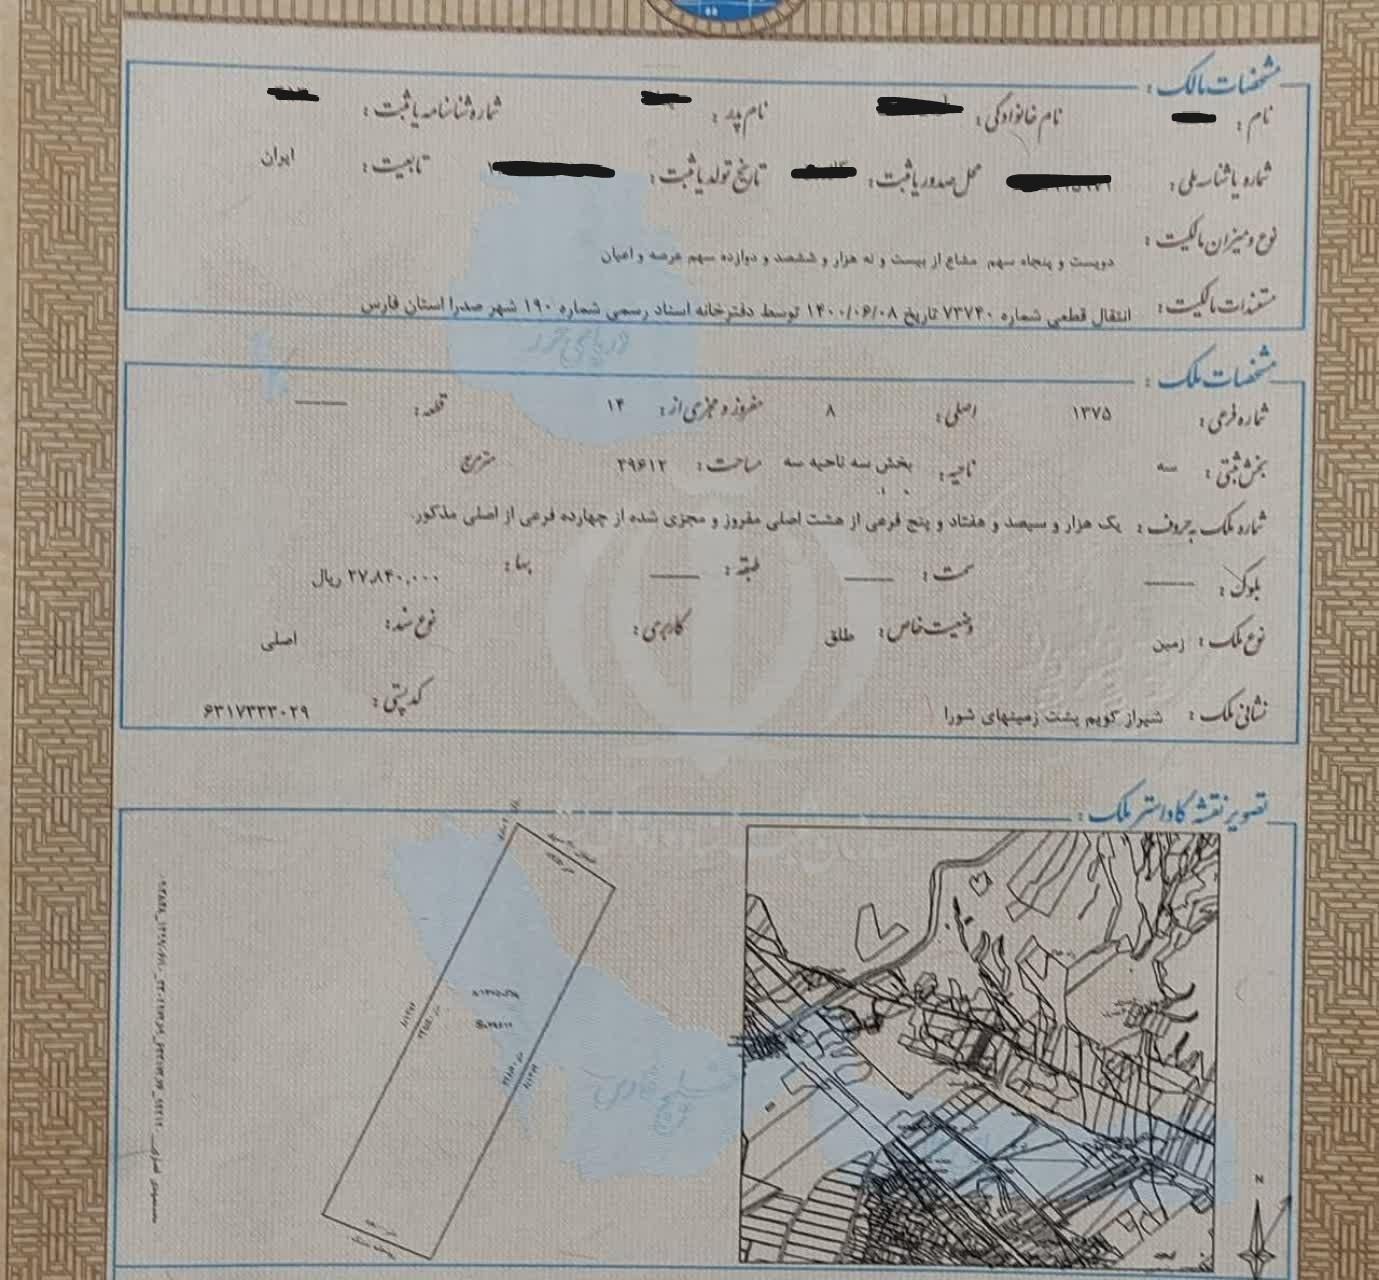 مشخصات مالک :
نام : نام خانوادگی : نام پدر : شماره شناسنامه یا ثبت :
شماره یا شناسه ملی : محل صدور یا ثبت : تاریخ تولد یا ثبت : تابعیت : ایران
نوع و میزان مالکیت : دویست و پنجاه سهم مشاع از بیست و نه هزار و ششصد و دوازده سهم عرصه و اعیان
مستندات مالکیت : انتقال قطعی شماره ۷۳۷۴۰ تاریخ ۱۴۰۰/۰۶/۰۸ توسط دفترخانه اسناد رسمی شماره ۱۹۰ شهر صدرا استان فارس
دریای خزر
مشخصات ملک :
شماره فرعی : ۱۳۷۵ اصلی : ۸ مفروز و مجزی از : ۱۴ قطعه :
بخش ثبتی : سه ناحیه : بخش سه ناحیه سه مساحت : ۲۹۶۱۲ مترمربع
شماره ملک به حروف : یک هزار و سیصد و هفتاد و پنج فرعی از هشت اصلی مفروز و مجزی شده از چهارده فرعی از اصلی مذکور.
بلوک : سمت : طبقه : بها : ۲۷،۸۴۰،۰۰۰ ریال
نوع ملک : زمین وضعیت خاص : طلق کاربری : نوع سند : اصلی
نشانی ملک : شیراز کویم پشت زمینهای شورا کد پستی : ۶۳۱۷۳۳۳۰۲۹
تصویر نقشه کاداستر ملک :
خلیج فارس
N